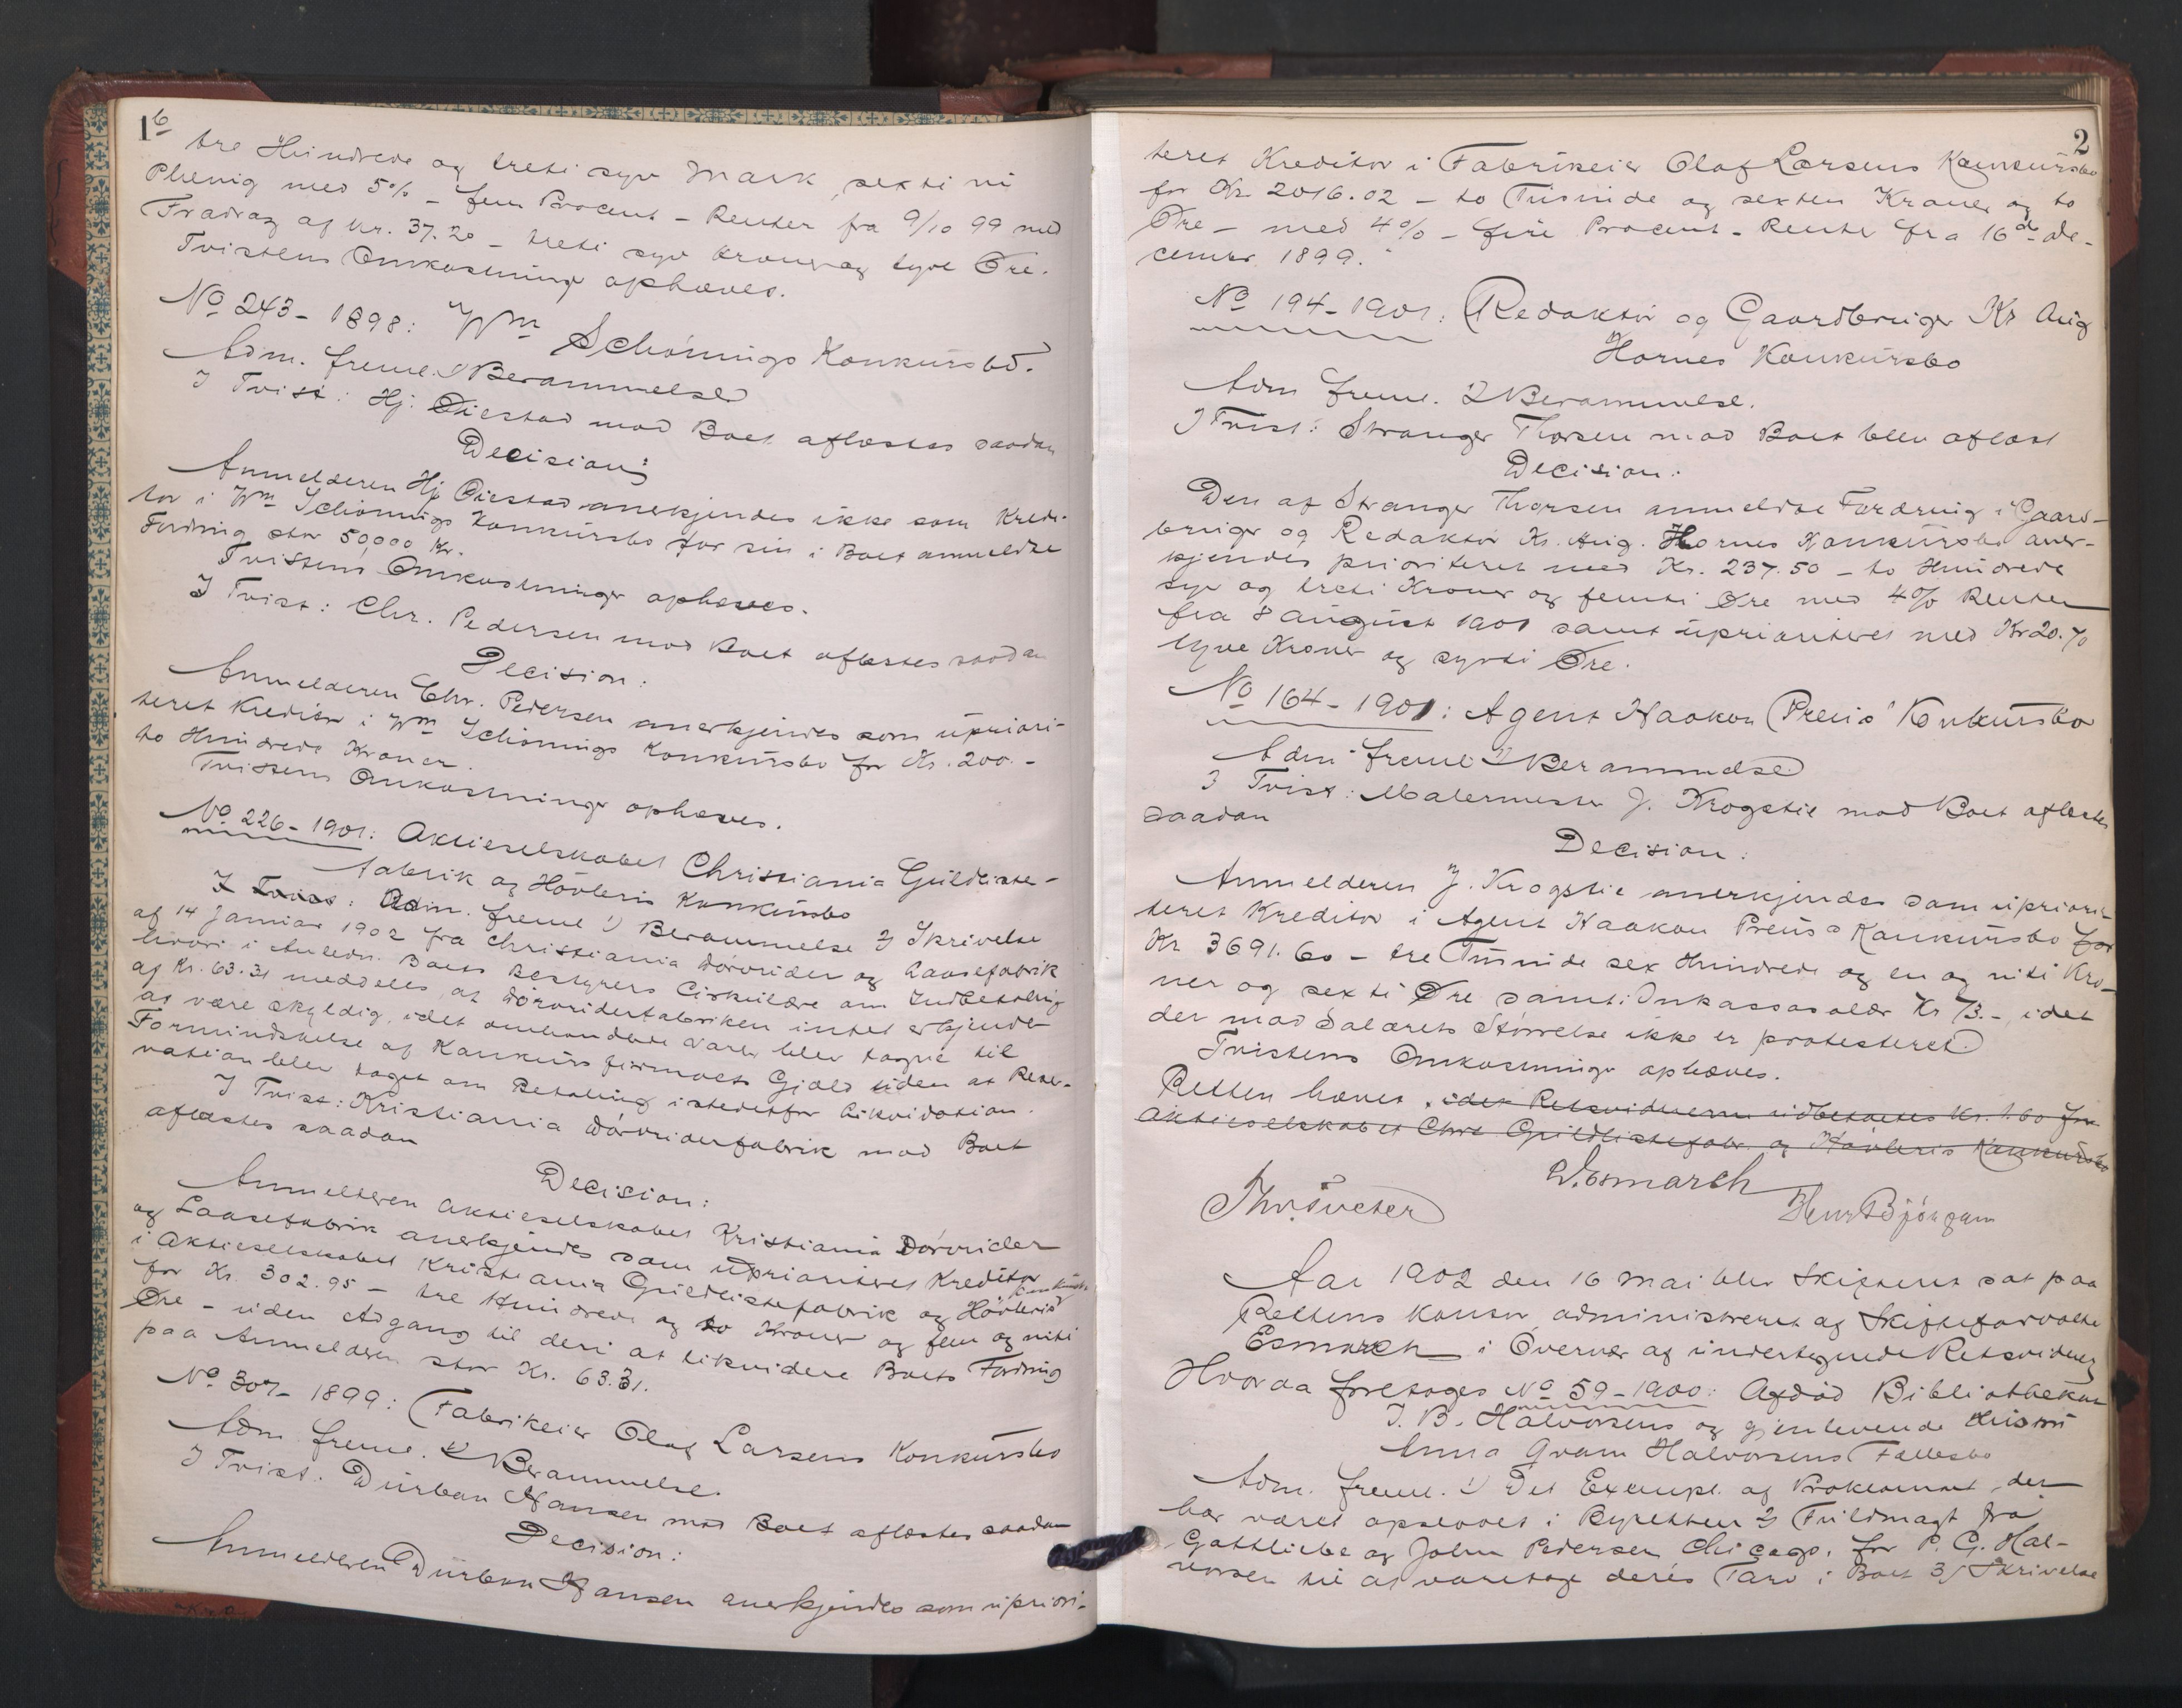 1b
tre Hundrede og treti syv Mark, sexti ni
Phenig med 5% - fem Procent - Renter fra 9/10 99 med
Fradrag af Kr. 37.20 - treti syv Kroner og tyve Øre.
Tvistens Omkostninger ophæves.
No 243 - 1898: Wm Schønnings Konkursbo.
Adm. freml. 1) Berammelse
I Tvist: Hj. Øiestad mod Boet aflæstes saadan
Decision:
Anmelderen Hj. Øiestad anerkjendes ikke som Kredi-
tor i Wm Schønnings Konkursbo for sin i Boet anmeldte
Fordring stor 50,000 Kr.
Tvistens Omkostninger ophæves.
I Tvist: Chr. Pedersen mod Boet aflæstes saadan
Decision:
Anmelderen Chr. Pedersen anerkjendes som upriori-
teret Kreditor i Wm Schønnings Konkursbo for Kr. 200.-
to Hundrede Kroner.
Tvistens Omkostninger ophæves.
No 226 - 1901: Aktieselskabet Christiania Guldliste-
fabrik og Høvleris Konkursbo
I Tvist: Adm. freml 1) Berammelse 2) Skrivelse
af 14 Januar 1902 fra Christiania Dørvrider og Laasefabrik
hvori i Anledn. Boets Bestyrers Cirkulære om Indbetaling
af Kr. 63.31 meddeles, at Dørvriderfabriken intet erkjender
at være skyldig, idet omhandlede Varer blev tagne til
Formindskelse af Konkursfirmaets Gjæld uden at Reser-
vation blev taget om Betaling istedetfor Likvidation.
I Tvist: Kristiania Dørvriderfabrik mod Boet
aflæstes saadan
Decision:
Anmelderen Aktieselskabet Kristiania Dørvrider
og Laasefabrik anerkjendes som uprioriteret Kreditor
i Aktieselskabet Kristiania Guldlistefabrik og Høvleris Konkursbo
for Kr. 302.95 - tre Hundrede og to Kroner og fem og niti
Øre - uden Adgang til deri at likvidere Boets Fordring
paa Anmelderen stor Kr. 63.31.
No 307 - 1899: Fabrikeier Olaf Larsens Konkursbo
Adm. freml. 1) Berammelse.
I Tvist: Durban Hansen mod Boet aflæstes saadan
Decision:
Anmelderen Durban Hansen anerkjendes som upriori-
2
teret Kreditor i Fabrikeier Olaf Larsens Konkursbo
for Kr. 2016.02 - to Tusinde og sexten Kroner og to
Øre - med 4% - fire Procent - Rente fra 16de De-
cember 1899.
No 194 - 1901: Redaktør og Gaardbruger Kr Aug
Hornes Konkursbo
Adm freml. 1) Berammelse.
I Tvist: Stranger Thorsen mod Boet blev aflæst
Decision:
Den af Stranger Thorsen anmeldte Fordring i Gaard-
bruger og Redaktør Kr. Aug. Hornes Konkursbo aner-
kjendes prioriteret med Kr. 237.50 - to Hundrede
syv og treti Kroner og femti Øre med 4% Renter
fra 8 August 1901 samt uprioriteret med Kr 20.70
tyve Kroner og sytti Øre.
No 164 - 1901: Agent Haakon Preus' Konkursbo
Adm freml 1) Berammelse
I Tvist: Malermester J. Krogstie mod Boet aflæstes
saadan
Decision:
Anmelderen J. Krogstie anerkjendes som upriori-
teret Kreditor i Agent Haakon Preus's Konkursbo for
Kr 3691.60 - tre Tusinde sex Hundrede og en og niti Kro-
ner og sexti Øre samt Inkassosalær Kr 73.-, idet
der mod Salærets Størrelse ikke er protesteret.
Tvistens Omkostninger ophæves.
Retten hævet, idet Retsvidnerne udbetaltes Kr. 1.60 fra
Aktieselskabet Chra Guldlistefabr. og Høvleris Konkursbo
Esmarch
Thv. Tveter
Henr Bjørgum
Aar 1902 den 16 Mai blev Skifteret sat paa
Rettens Kontor, administreret af Skifteforvalter
Esmarch i Overvær af undertegnede Retsvidner
Hvorda foretoges No 59 - 1900: Afdød Bibliothekar
J. B. Halvorsens og gjenlevende Hustru
Anna Gram Halvorsens Fællesbo
Adm. freml. 1) Det Exempl. af Proklamaet der
har været opslaaet i Byretten 2) Fuldmagt fra
Gottliebe og John Pedersen, Chicago, for P. G. Hal-
vorsen til at varetage deres Tarv i Boet 3) Skrivelse